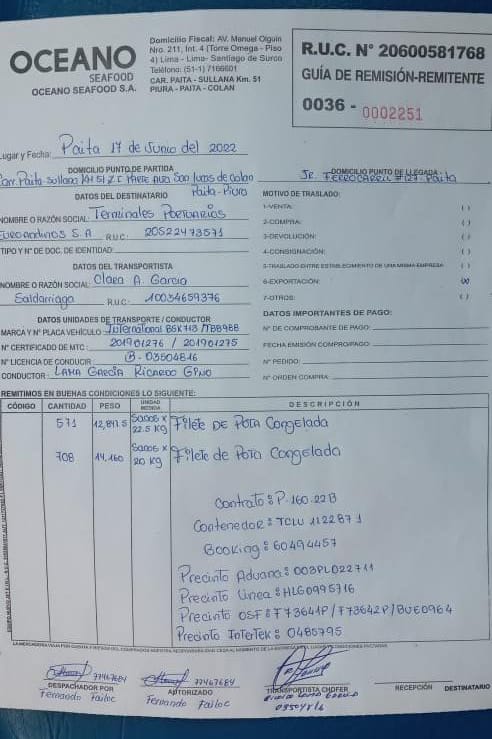 OCEANO
SEAFOOD
OCEANO SEAFOOD S.A.
Domicilio Fiscal: AV. Manuel Olguin
Nro. 211, Int. 4 (Torre Omega - Piso
4) Lima - Lima- Santiago de Surco
Teléfono: (51-1) 7166601
CAR. PAITA - SULLANA Km. 51
PIURA - PAITA - COLAN
R.U.C. N° 20600581768
GUÍA DE REMISIÓN-REMITENTE
0036 - 0002251
Lugar y Fecha: Paita 17 de Junio del 2022
DOMICILIO PUNTO DE PARTIDA
Carr. Paita Sullana KM 51 Z.I. San Lucas de Colan
Paita-Piura
DOMICILIO PUNTO DE LLEGADA
JR. FERROCARRIL #127-Paita
DATOS DEL DESTINATARIO
NOMBRE O RAZÓN SOCIAL: Terminales Portuarios
Euroandinos S.A RUC: 20522473571
TIPO Y N° DE DOC. DE IDENTIDAD:
MOTIVO DE TRASLADO:
1-VENTA: ( )
2-COMPRA: ( )
3-DEVOLUCIÓN: ( )
4-CONSIGNACIÓN: ( )
5-TRASLADO ENTRE ESTABLECIMIENTO DE UNA MISMA EMPRESA ( )
6-EXPORTACIÓN: (X)
7-OTROS: ( )
DATOS DEL TRANSPORTISTA
NOMBRE O RAZÓN SOCIAL: Clara A. Garcia
Saldarriaga RUC: 10034659376
DATOS UNIDADES DE TRANSPORTE / CONDUCTOR
MARCA Y N° PLACA VEHÍCULO: International B5K713/TBB988
N° CERTIFICADO DE MTC: 201901276 / 201901275
N° LICENCIA DE CONDUCIR B-03504816
CONDUCTOR: LAMA GARCÍA RICARDO GINO
DATOS IMPORTANTES DE PAGO:
N° DE COMPROBANTE DE PAGO:
FECHA EMISIÓN COMPRO/PAGO:
N° PEDIDO:
N° ORDEN COMPRA:
REMITIMOS EN BUENAS CONDICIONES LO SIGUIENTE:
CÓDIGO CANTIDAD PESO UNIDAD MEDIDA DESCRIPCIÓN
571 12,847.5 Sacos x 22.5 Kg Filete DE POTA Congelada
708 14,160 Sacos x 20 Kg Filete de Pota Congelada
Contrato: P-160.22B
Contenedor: TCLU 1122871
Booking: 60494457
Precinto Aduana: 003PL022711
Precinto Linea: HLG0995716
Precinto OSF: F73641P/F73642P/BUE0964
Precinto Intertek: 0485795
77467684
DESPACHADOR POR
Fernando Pailoc
77467684
AUTORIZADO
Fernando Pailoc
TRANSPORTISTA CHOFER
RECEPCIÓN DESTINATARIO